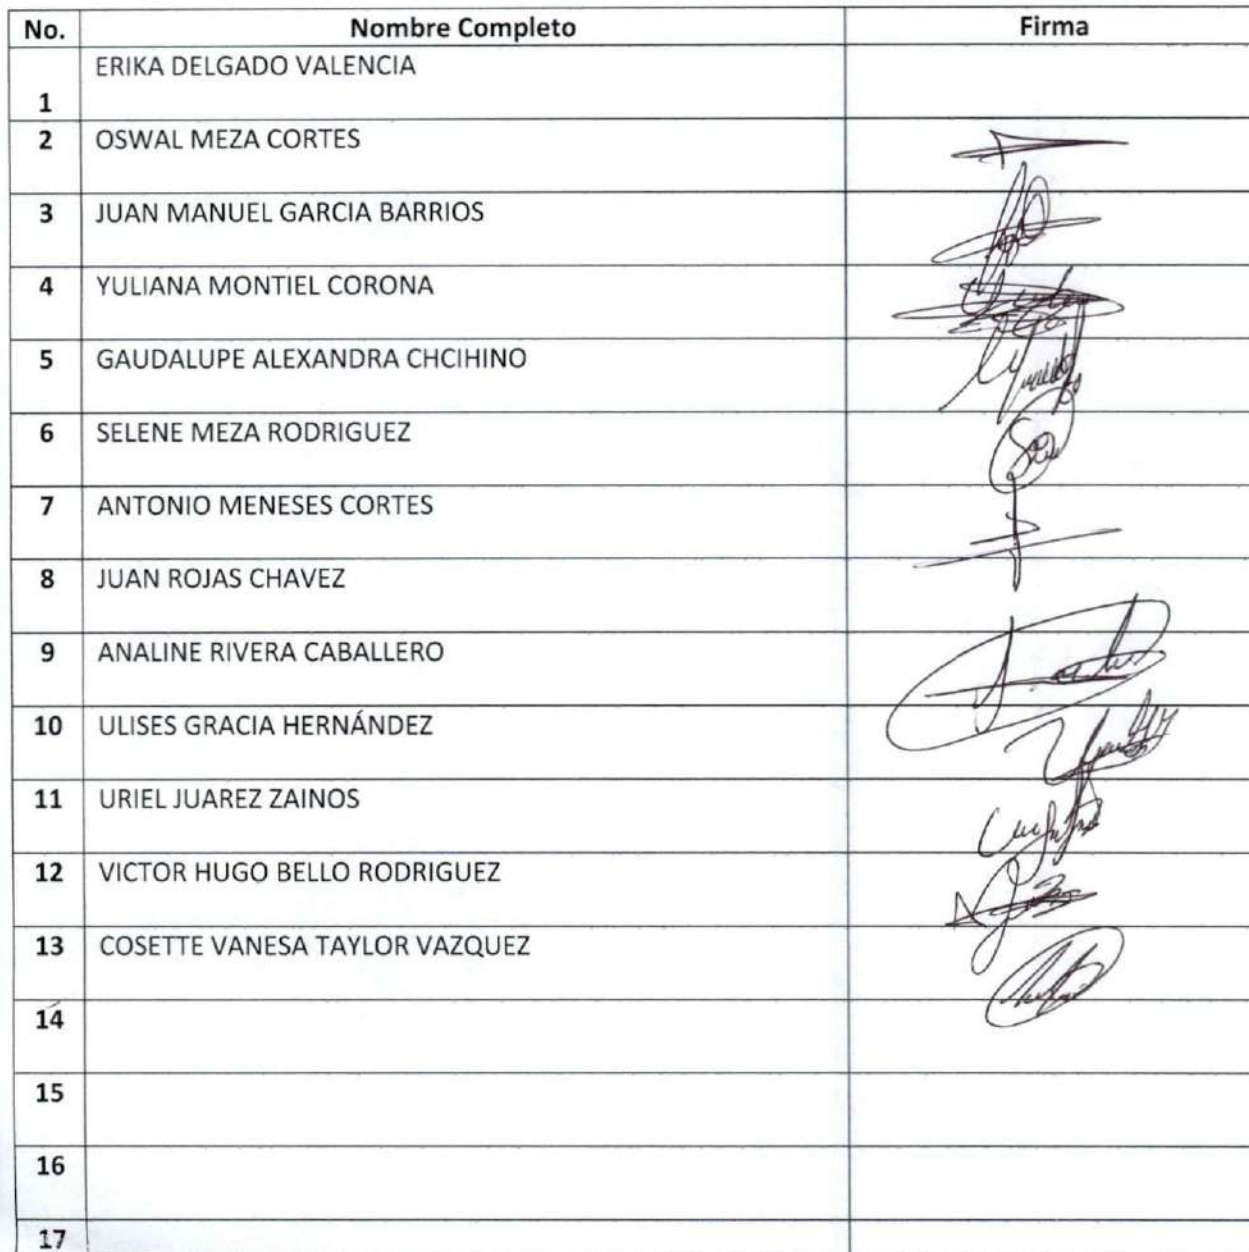 No. Nombre Completo Firma
ERIKA DELGADO VALENCIA
1
2 OSWAL MEZA CORTES
3 JUAN MANUEL GARCIA BARRIOS
4 YULIANA MONTIEL CORONA
5 GAUDALUPE ALEXANDRA CHCIHINO
6 SELENE MEZA RODRIGUEZ
7 ANTONIO MENESES CORTES
8 JUAN ROJAS CHAVEZ
9 ANALINE RIVERA CABALLERO
10 ULISES GRACIA HERNÁNDEZ
11 URIEL JUAREZ ZAINOS
12 VICTOR HUGO BELLO RODRIGUEZ
13 COSETTE VANESA TAYLOR VAZQUEZ
14
15
16
17